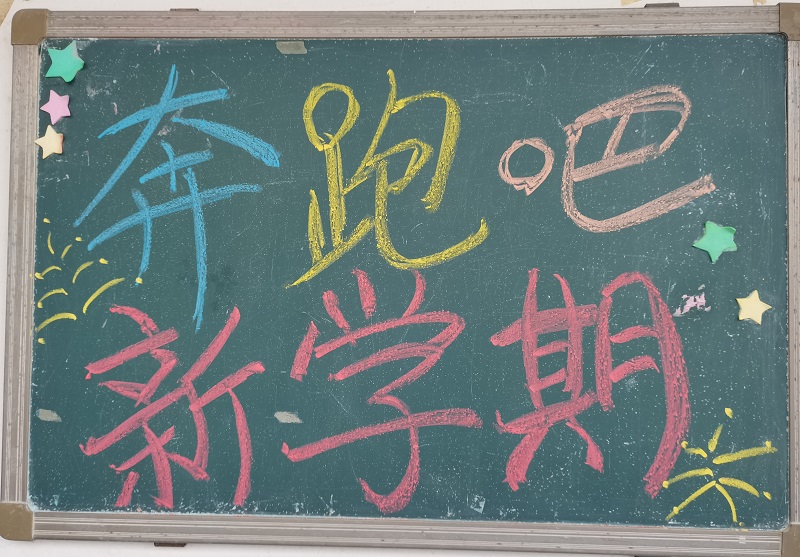 奔跑吧
新学期